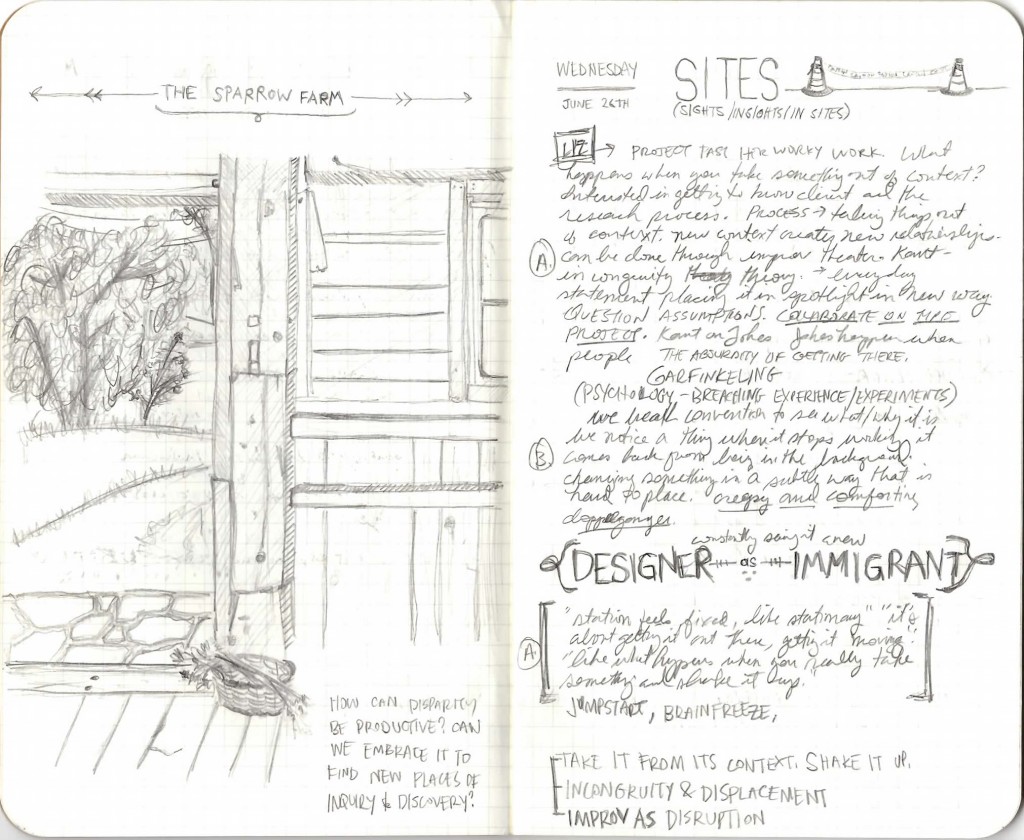 THE SPARROW FARM
HOW CAN DISPARITY
BE PRODUCTIVE? CAN
WE EMBRACE IT TO
FIND NEW PLACES OF
INQUIRY & DISCOVERY?
WEDNESDAY
JUNE 26TH
SITES
(SIGHTS/INSIGHTS/IN SITES)
LIZ → PROJECT WORK. What
happens when you take something out of context?
Interested in getting to know client and the
research process. PROCESS → taking things out
of context. new context creates new relationships.
A. can be done through improv theater. Kant -
incongruity theory. → everyday
statement placing it in spotlight in new way.
QUESTION ASSUMPTIONS. COLLABORATE ON
PROJECT. Kant on Jokes. Jokes happen when
people THE ABSURDITY OF GETTING THERE.
GARFINKELING
(PSYCHOLOGY - BREACHING EXPERIENCE/EXPERIMENTS)
we break convention to see what/why it is
we notice a thing when it stops working, it
B. comes back from being in the background.
changing something in a subtle way that is
hard to place. creepy and comforting
doppelganger.
constantly seeing it anew
DESIGNER as IMMIGRANT
"station feels fixed, like stationary" "it's
about getting it out there, getting it moving".
A. "like what happens when you really take
something and shake it up."
JUMPSTART, BRAINFREEZE,
TAKE IT FROM ITS CONTEXT. SHAKE IT UP.
INCONGRUITY & DISPLACEMENT
IMPROV AS DISRUPTION